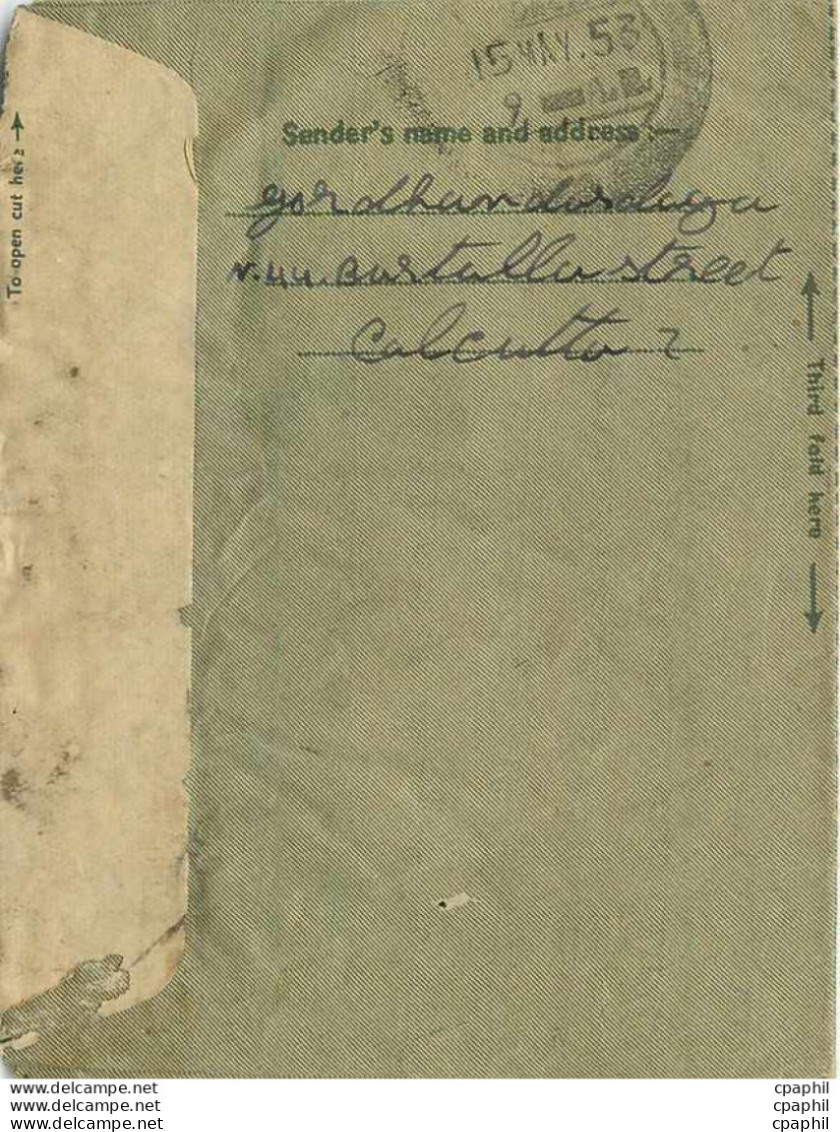 15 MAY. 53
9
Sender's name and address :—
N. 44. Burtalla street
Calcutta 7
To open cut here
Third fold here
www.delcampe.net cpaphil
www.delcampe.net cpaphil
www.delcampe.net cpaphil